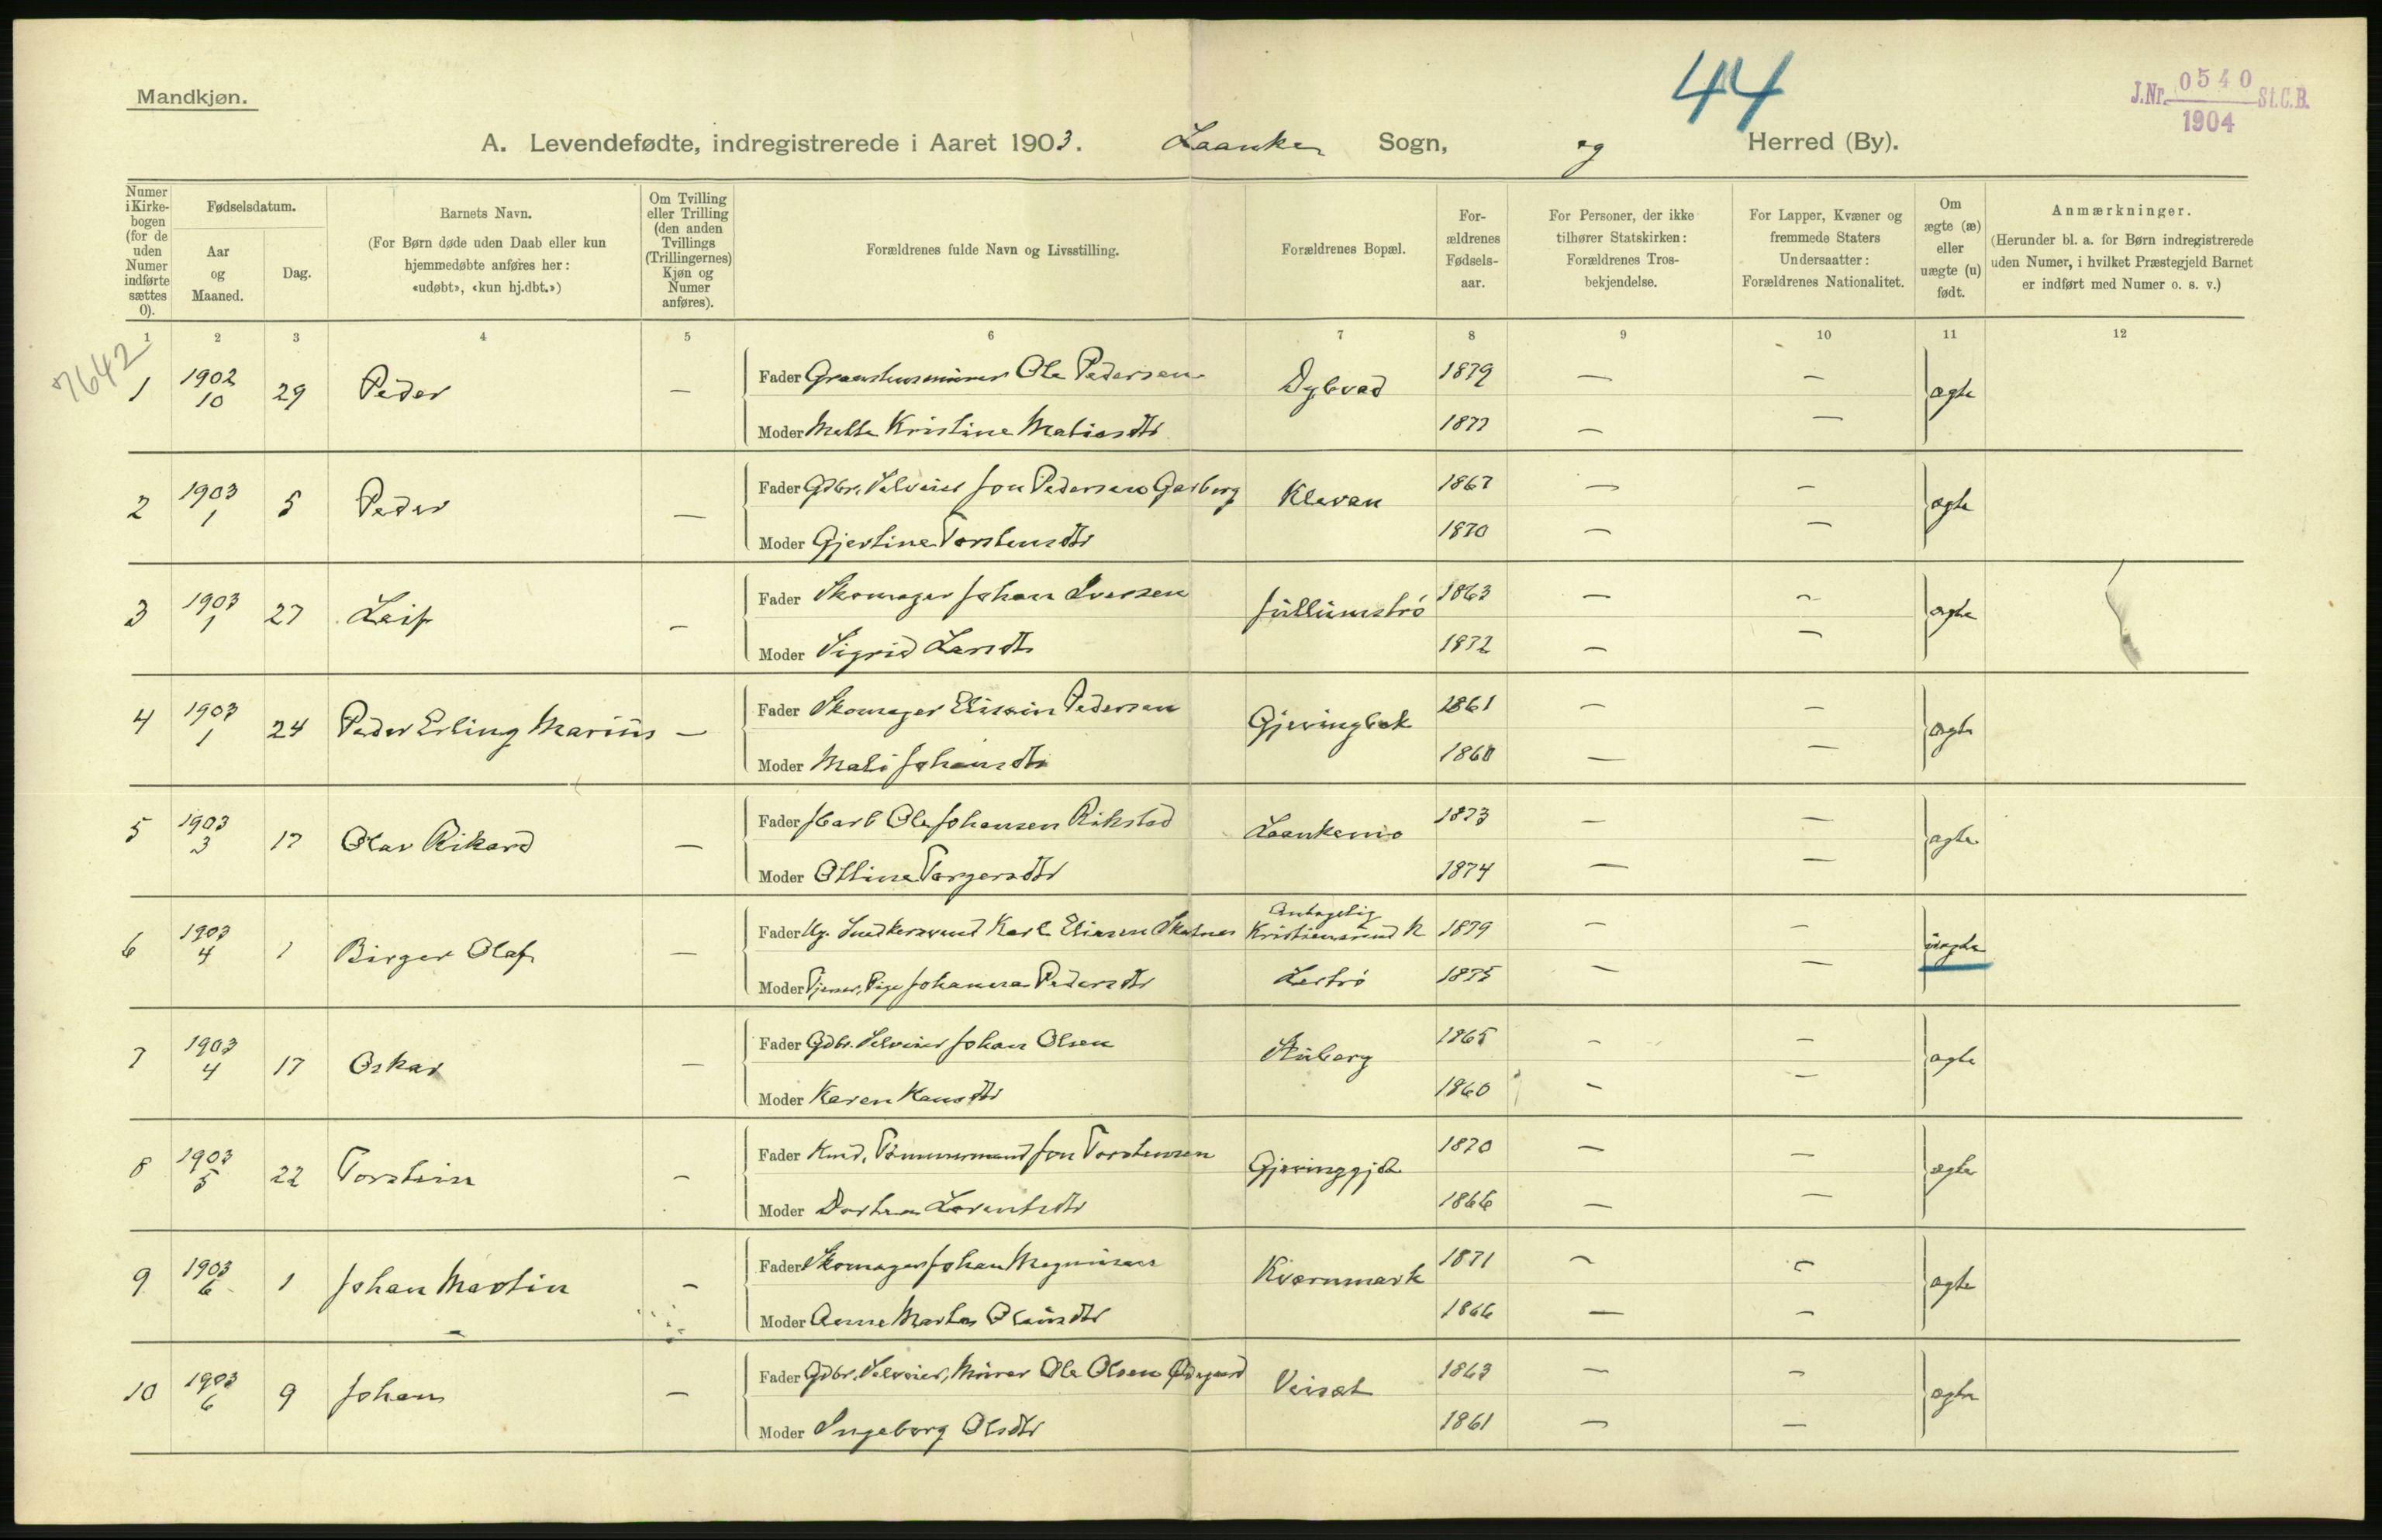 Mandkjøn.
44
J.Nr. 0540 St.C.B.
1904
A. Levendefødte, indregistrerede i Aaret 1903. Laanke Sogn, og Herred (By).
Numer i Kirkebogen (for de uden Numer indførte sættes 0).
Fødselsdatum.
Aar og Maaned.
Dag.
Barnets Navn.
(For Børn døde uden Daab eller kun hjemmedøbte anføres her: «udøbt», «kun hj.dbt.»)
Om Tvilling eller Trilling (den anden Tvillings (Trillingernes) Kjøn og Numer anføres).
Forældrenes fulde Navn og Livsstilling.
Forældrenes Bopæl.
Forældrenes Fødselsaar.
For Personer, der ikke tilhører Statskirken: Forældrenes Trosbekjendelse.
For Lapper, Kvæner og fremmede Staters Undersaatter: Forældrenes Nationalitet.
Om ægte (æ) eller uægte (u) født.
Anmærkninger.
(Herunder bl. a. for Børn indregistrerede uden Numer, i hvilket Præstegjeld Barnet er indført med Numer o. s. v.)
1 2 3 4 5 6 7 8 9 10 11 12
7642
1 1902 10 29 Peder — Fader Ole Pedersen Dybvad 1879 — — ægte
Moder Kristine Matiasdtr 1877 — —
2 1903 1 5 Peder — Fader Gdbr. Selveier Jon Pedersen Garberg Klevan 1867 — — ægte
Moder Gjertine Torstensdtr 1870 — —
3 1903 1 27 Leif — Fader Skomager Johan Iversen Jullumstrø 1863 — — ægte
Moder Sigrid Larsdtr 1872 — —
4 1903 1 24 Peder Erling Marius — Fader Skomager Pedersen Gjevingbak 1861 — — ægte
Moder Mali Johansdtr 1860 — —
5 1903 3 17 Olav Rikard — Fader Jbarb Ole Johansen Rikstad Laankemo 1873 — — ægte
Moder Olline Torgersdtr 1874 — —
6 1903 4 1 Birger Olaf — Fader Ug. Snedkersvend Karl Eliasen Skatnes Antagelig Kristiansund N 1879 — — uægte
Moder Tjener, Pige Johanna Pedersdtr Lertrø 1875 — —
7 1903 4 17 Oskar — Fader Gdbr. Selveier Johan Olsen Stuberg 1865 — — ægte
Moder Karen Hansdtr 1860 — —
8 1903 5 22 Torstein — Fader Tømmermand Jon Torstensen 1870 — — ægte
Moder Dortea Lorentsdtr 1866 — —
9 1903 6 1 Johan Martin — Fader Skomager Johan Magnusen Kvernmark 1871 — — ægte
Moder Anne Marta Olausdtr 1866 — —
10 1903 6 9 Johan — Fader Gdbr. Selveier, Murer Ole Olsen Ødegaard Veisæt 1863 — — ægte
Moder Ingeborg Olsdtr 1861 — —